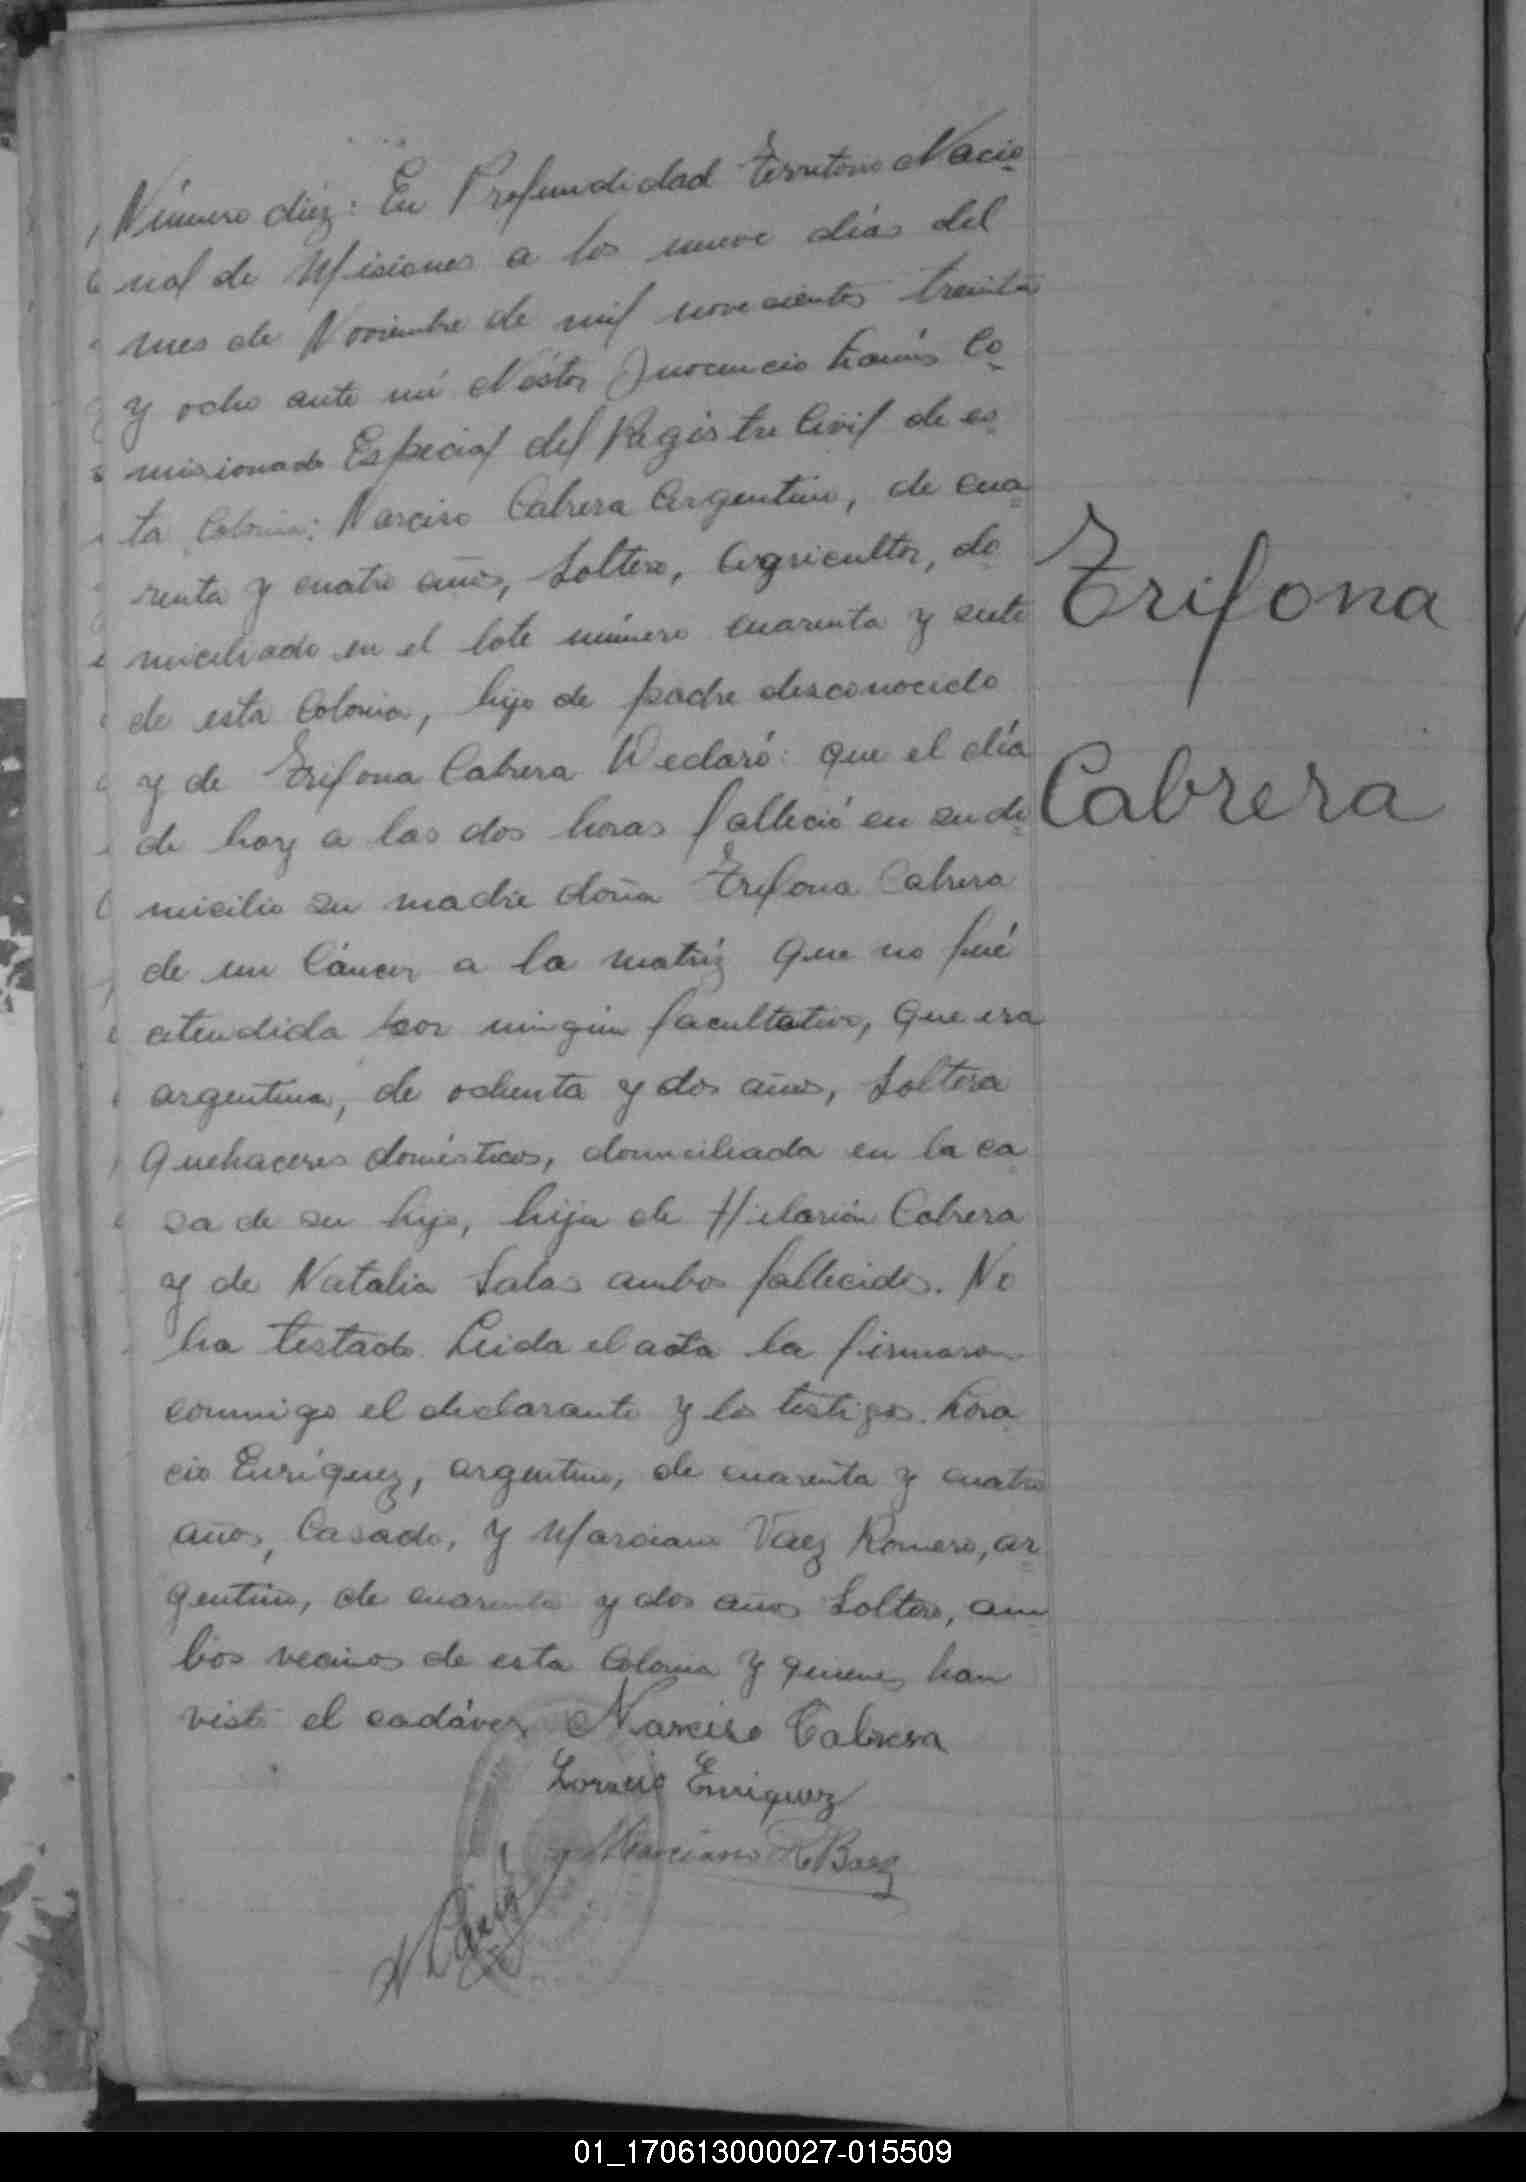 Número diéz: En Profundidad Territorio Nacio
nal de Misiones a los nueve días del
mes de Noviembre de mil novecientos treinta
y ocho ante mí Néstor Inocencio Co
misionado Especial del Registro Civil de es
ta Colonia: Narciso Cabrera Argentino, de cua
renta y cuatro años, Soltero, Agricultor, do
miciliado en el lote número cuarenta y siete
de esta Colonia, hijo de padre desconocido
y de Trifona Cabrera Declaró: que el día
de hoy a las dos horas falleció en su do
micilio su madre doña Trifona Cabrera
de un Cáncer a la matríz que no fué
atendida por ningún facultativo, que era
argentina, de ochenta y dos años, Soltera
Quehaceres domésticos, domiciliada en la ca
sa de su hijo, hija de Hilarión Cabrera
y de Natalia Salas ambos fallecidos. No
ha testado. Leida el acta la firmaron
conmigo el declarante y los testigos. Hora
cio Enríquez, argentino, de cuarenta y cuatro
años, Casado, y Marciano Vaez Romero, ar
gentino, de cuarenta y dos años Soltero, am
bos vecinos de esta Colonia y quienes han
visto el cadáver Narciso Cabrera
Enriquez
Marciano R Baez
Trifona
Cabrera
01_170613000027-015509